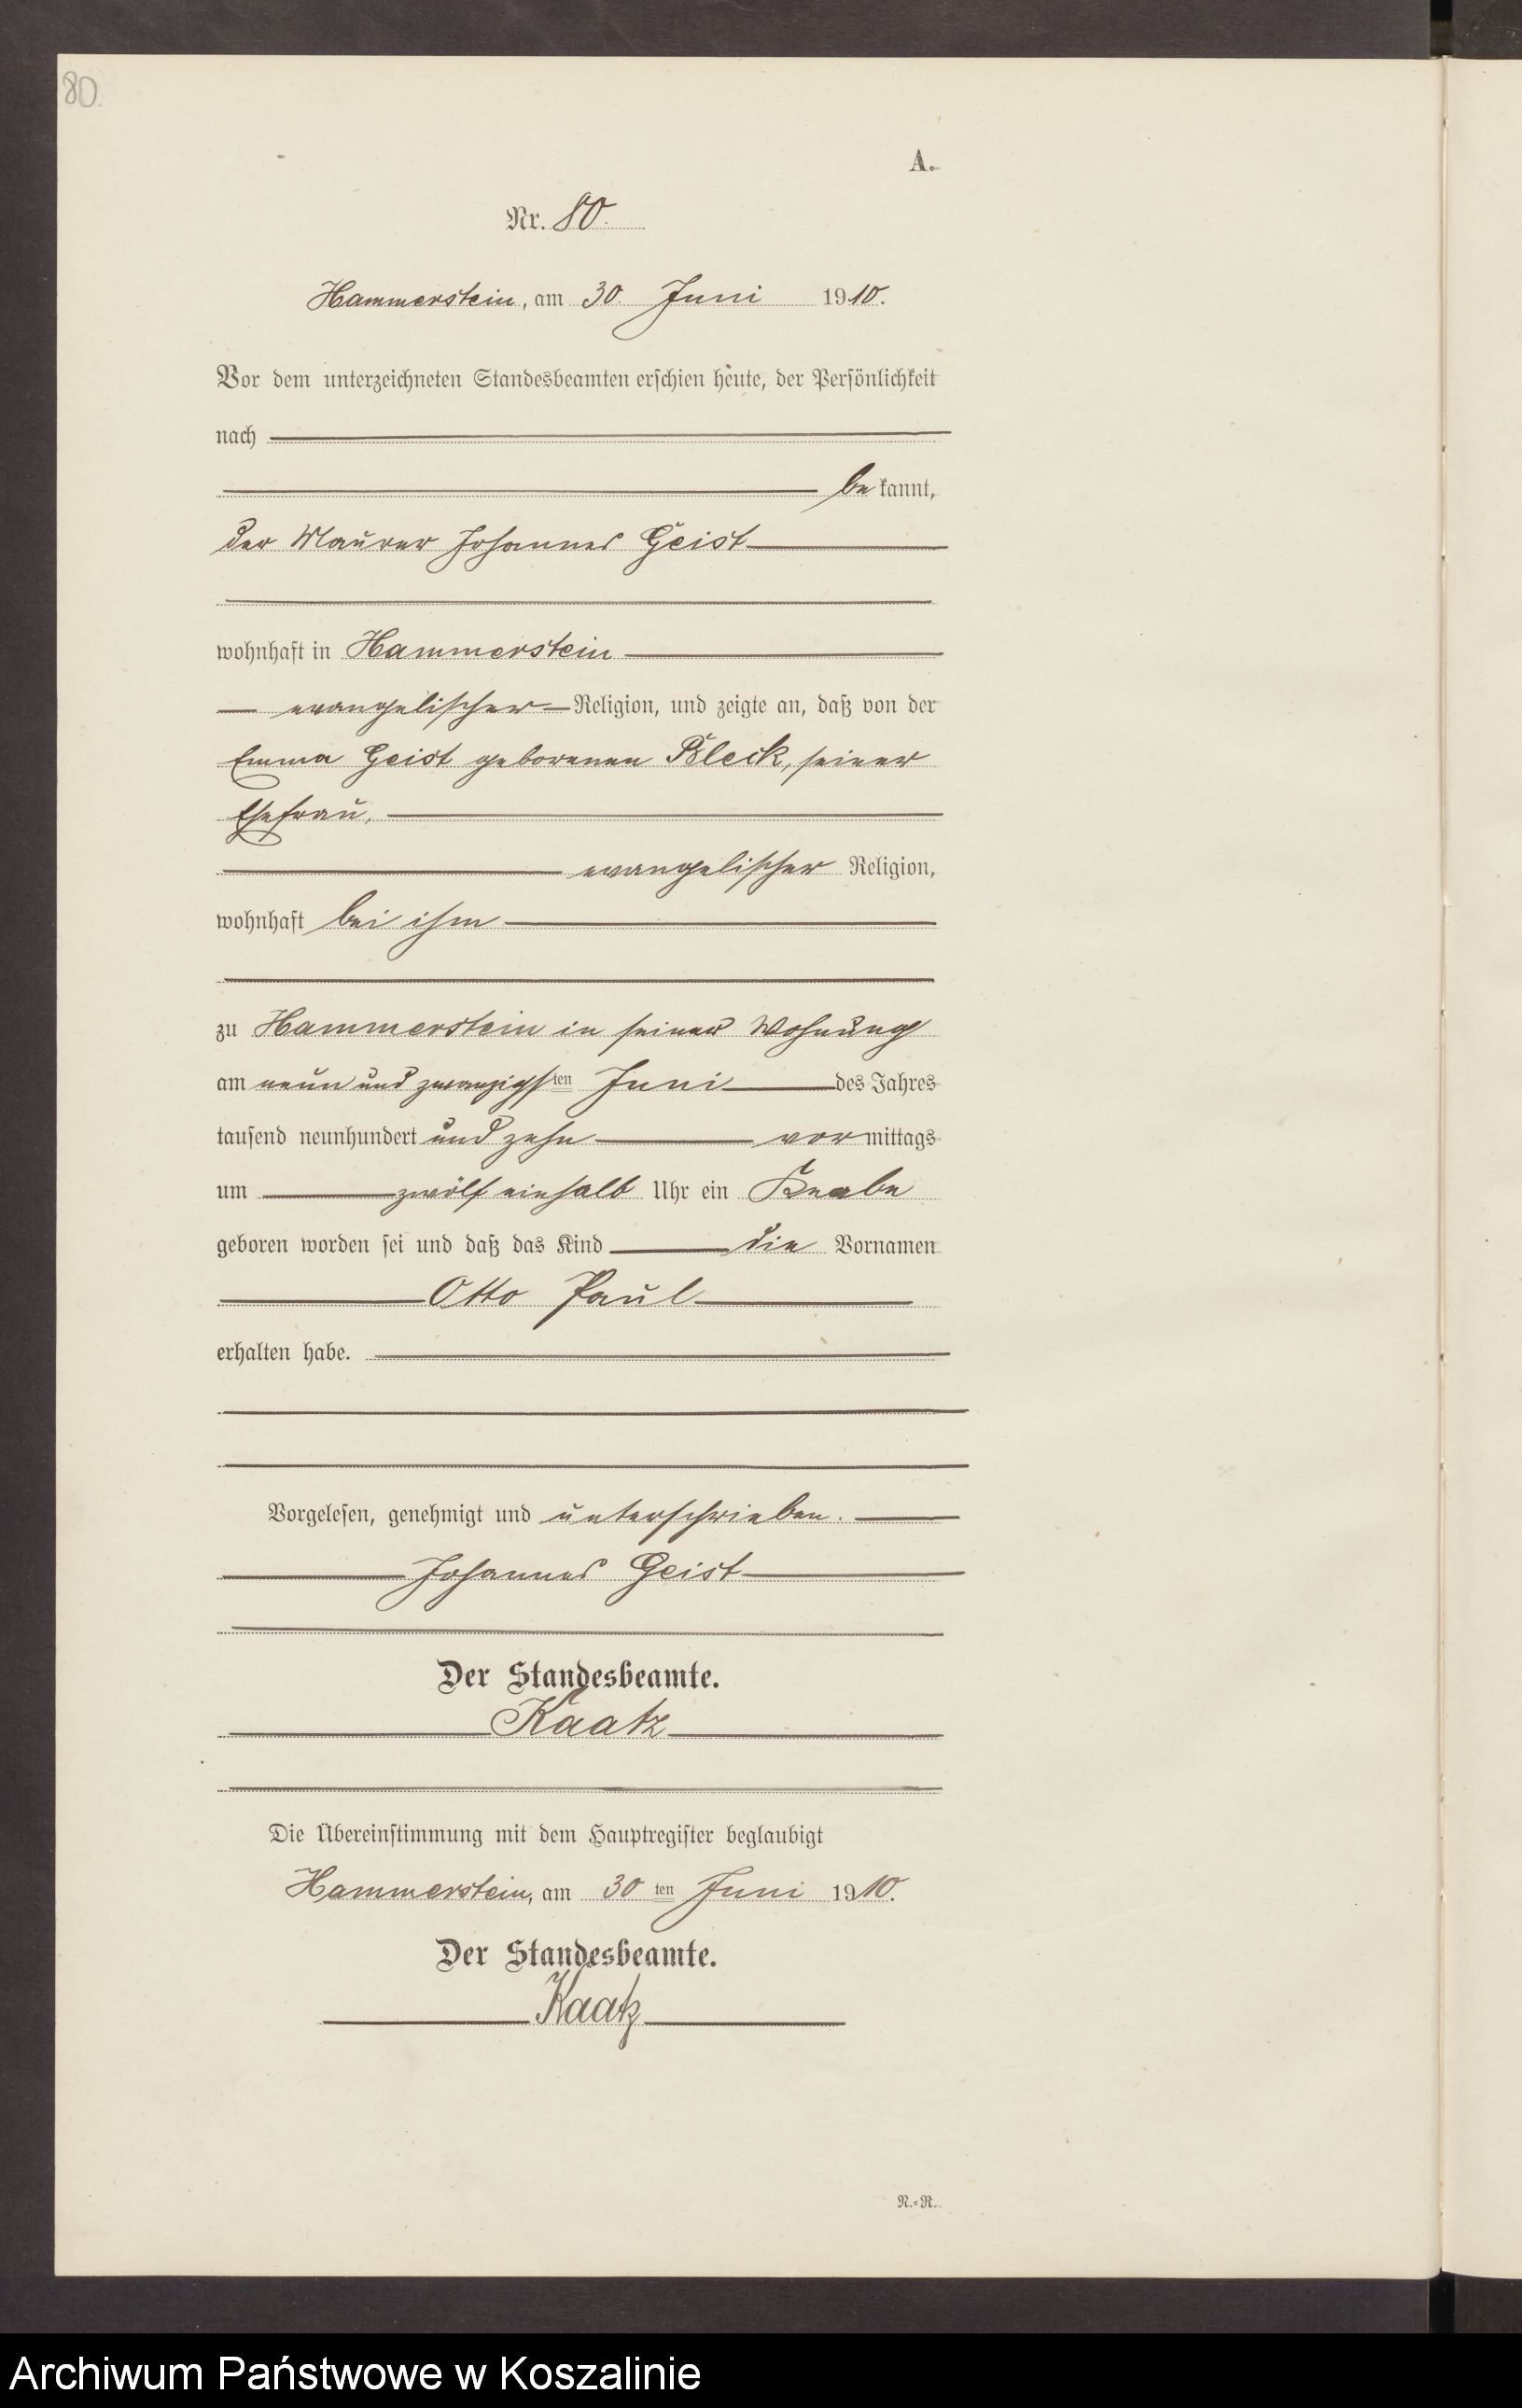 80.
A.
Nr. 80.
Hammerstein, am 30. Juni 1910.
Vor dem unterzeichneten Standesbeamten erschien heute, der Persönlichkeit
nach
bekannt,
der Maurer Johannes Geist
wohnhaft in Hammerstein
evangelischer Religion, und zeigte an, daß von der
Emma Geist geborenen Bleck, seiner
Ehefrau,
evangelischer Religion,
wohnhaft bei ihm
zu Hammerstein in seiner Wohnung
am neun und zwanzigsten Juni des Jahres
tausend neunhundert und zehn vormittags
um zwölf einhalb Uhr ein Knabe
geboren worden sei und daß das Kind die Vornamen
Otto Paul
erhalten habe.
Vorgelesen, genehmigt und unterschrieben.
Johannes Geist
Der Standesbeamte.
Kaatz
Die Übereinstimmung mit dem Hauptregister beglaubigt
Hammerstein, am 30ten Juni 1910.
Der Standesbeamte.
Kaatz
N.-R.
Archiwum Państwowe w Koszalinie